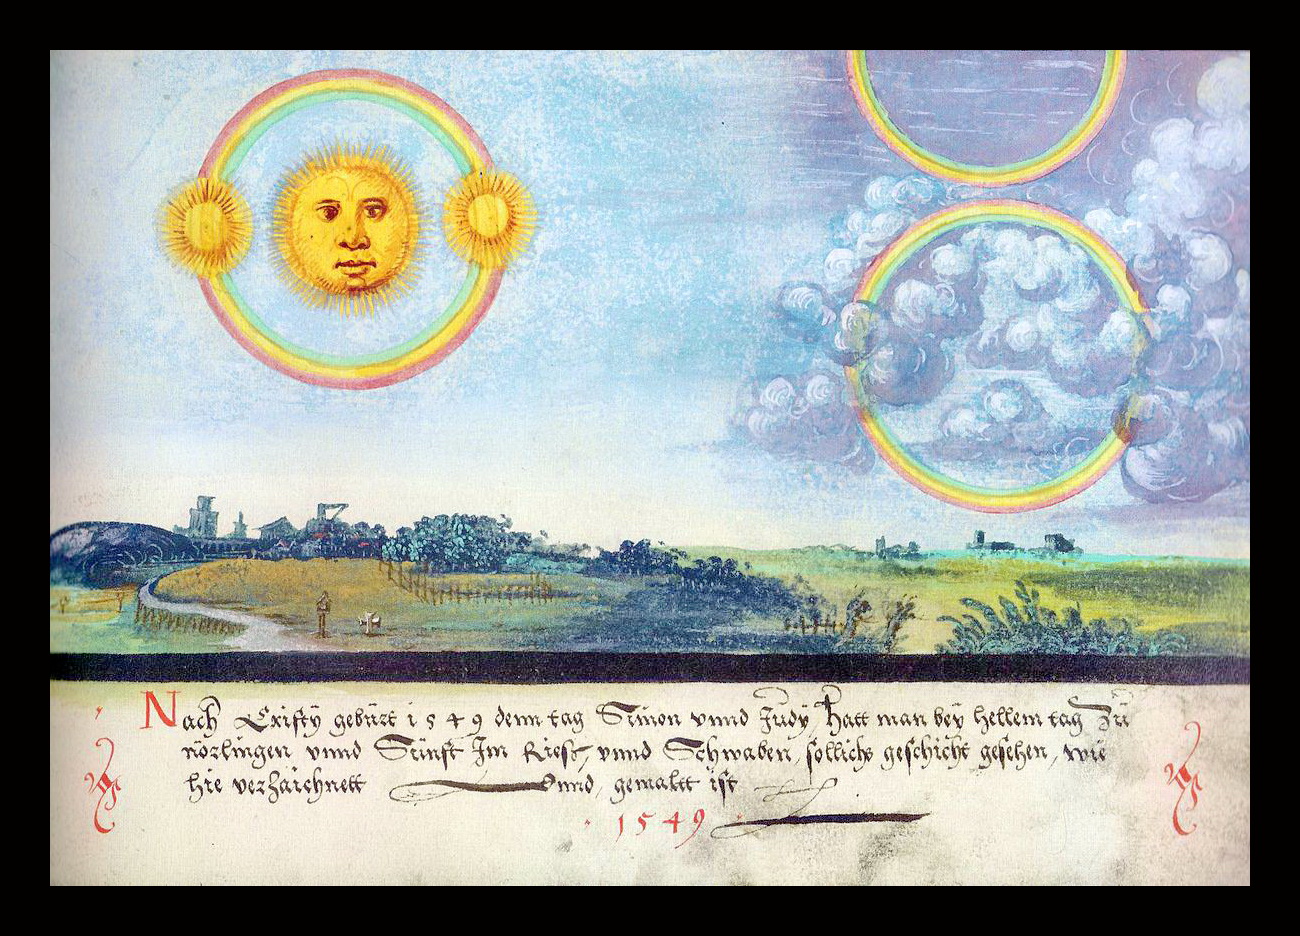 Nach Cristÿ gebürt 1549 denn tag Simon vnnd Judÿ, Hatt man beÿ hellem tag Zu
nörlingen vnnd Sünst Im Riess, vnnd Schwaben, sollichs geschicht gesehen, wie
hie verzaichnett vnnd, gemaltt ist
1549